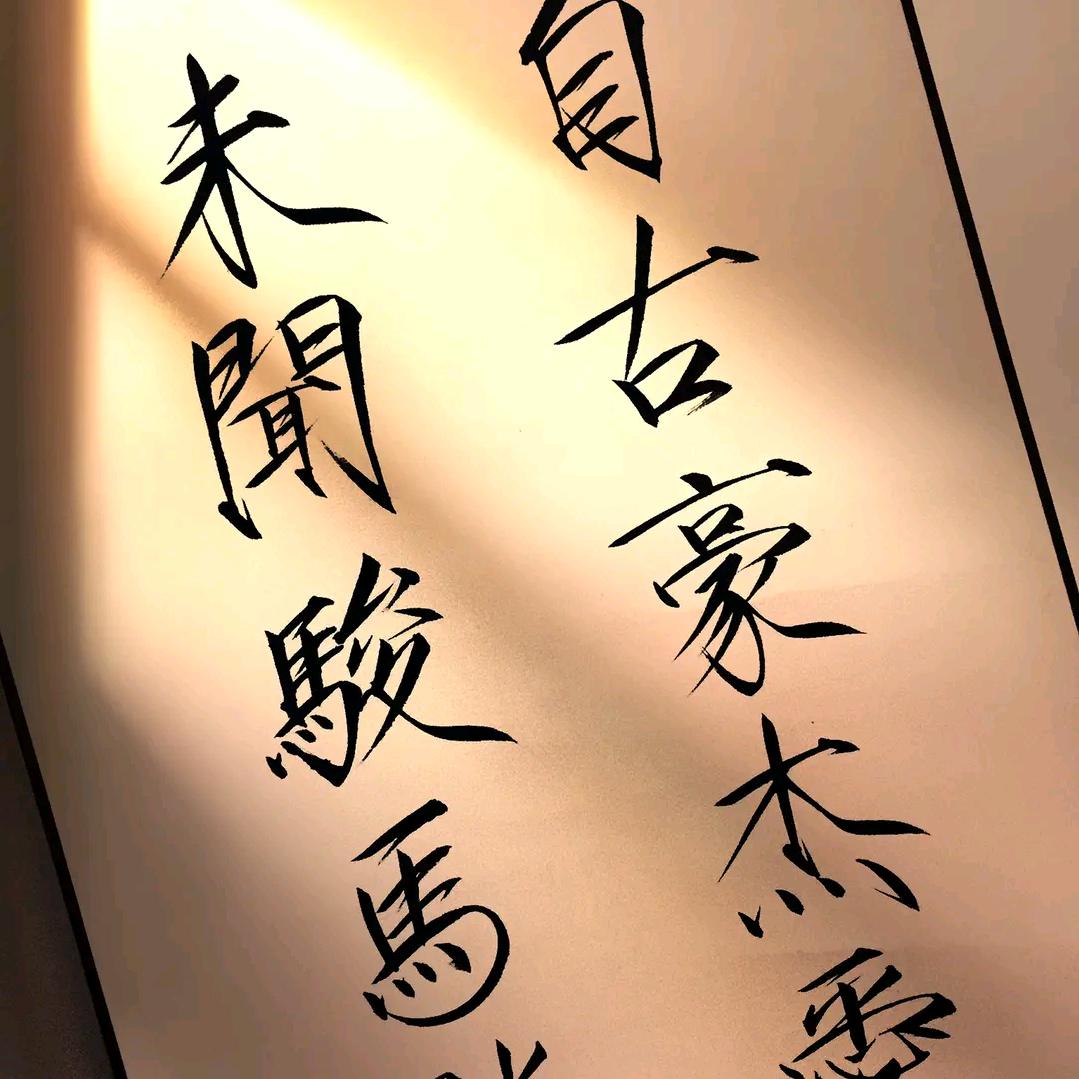 自古豪杰愛
未聞駿馬